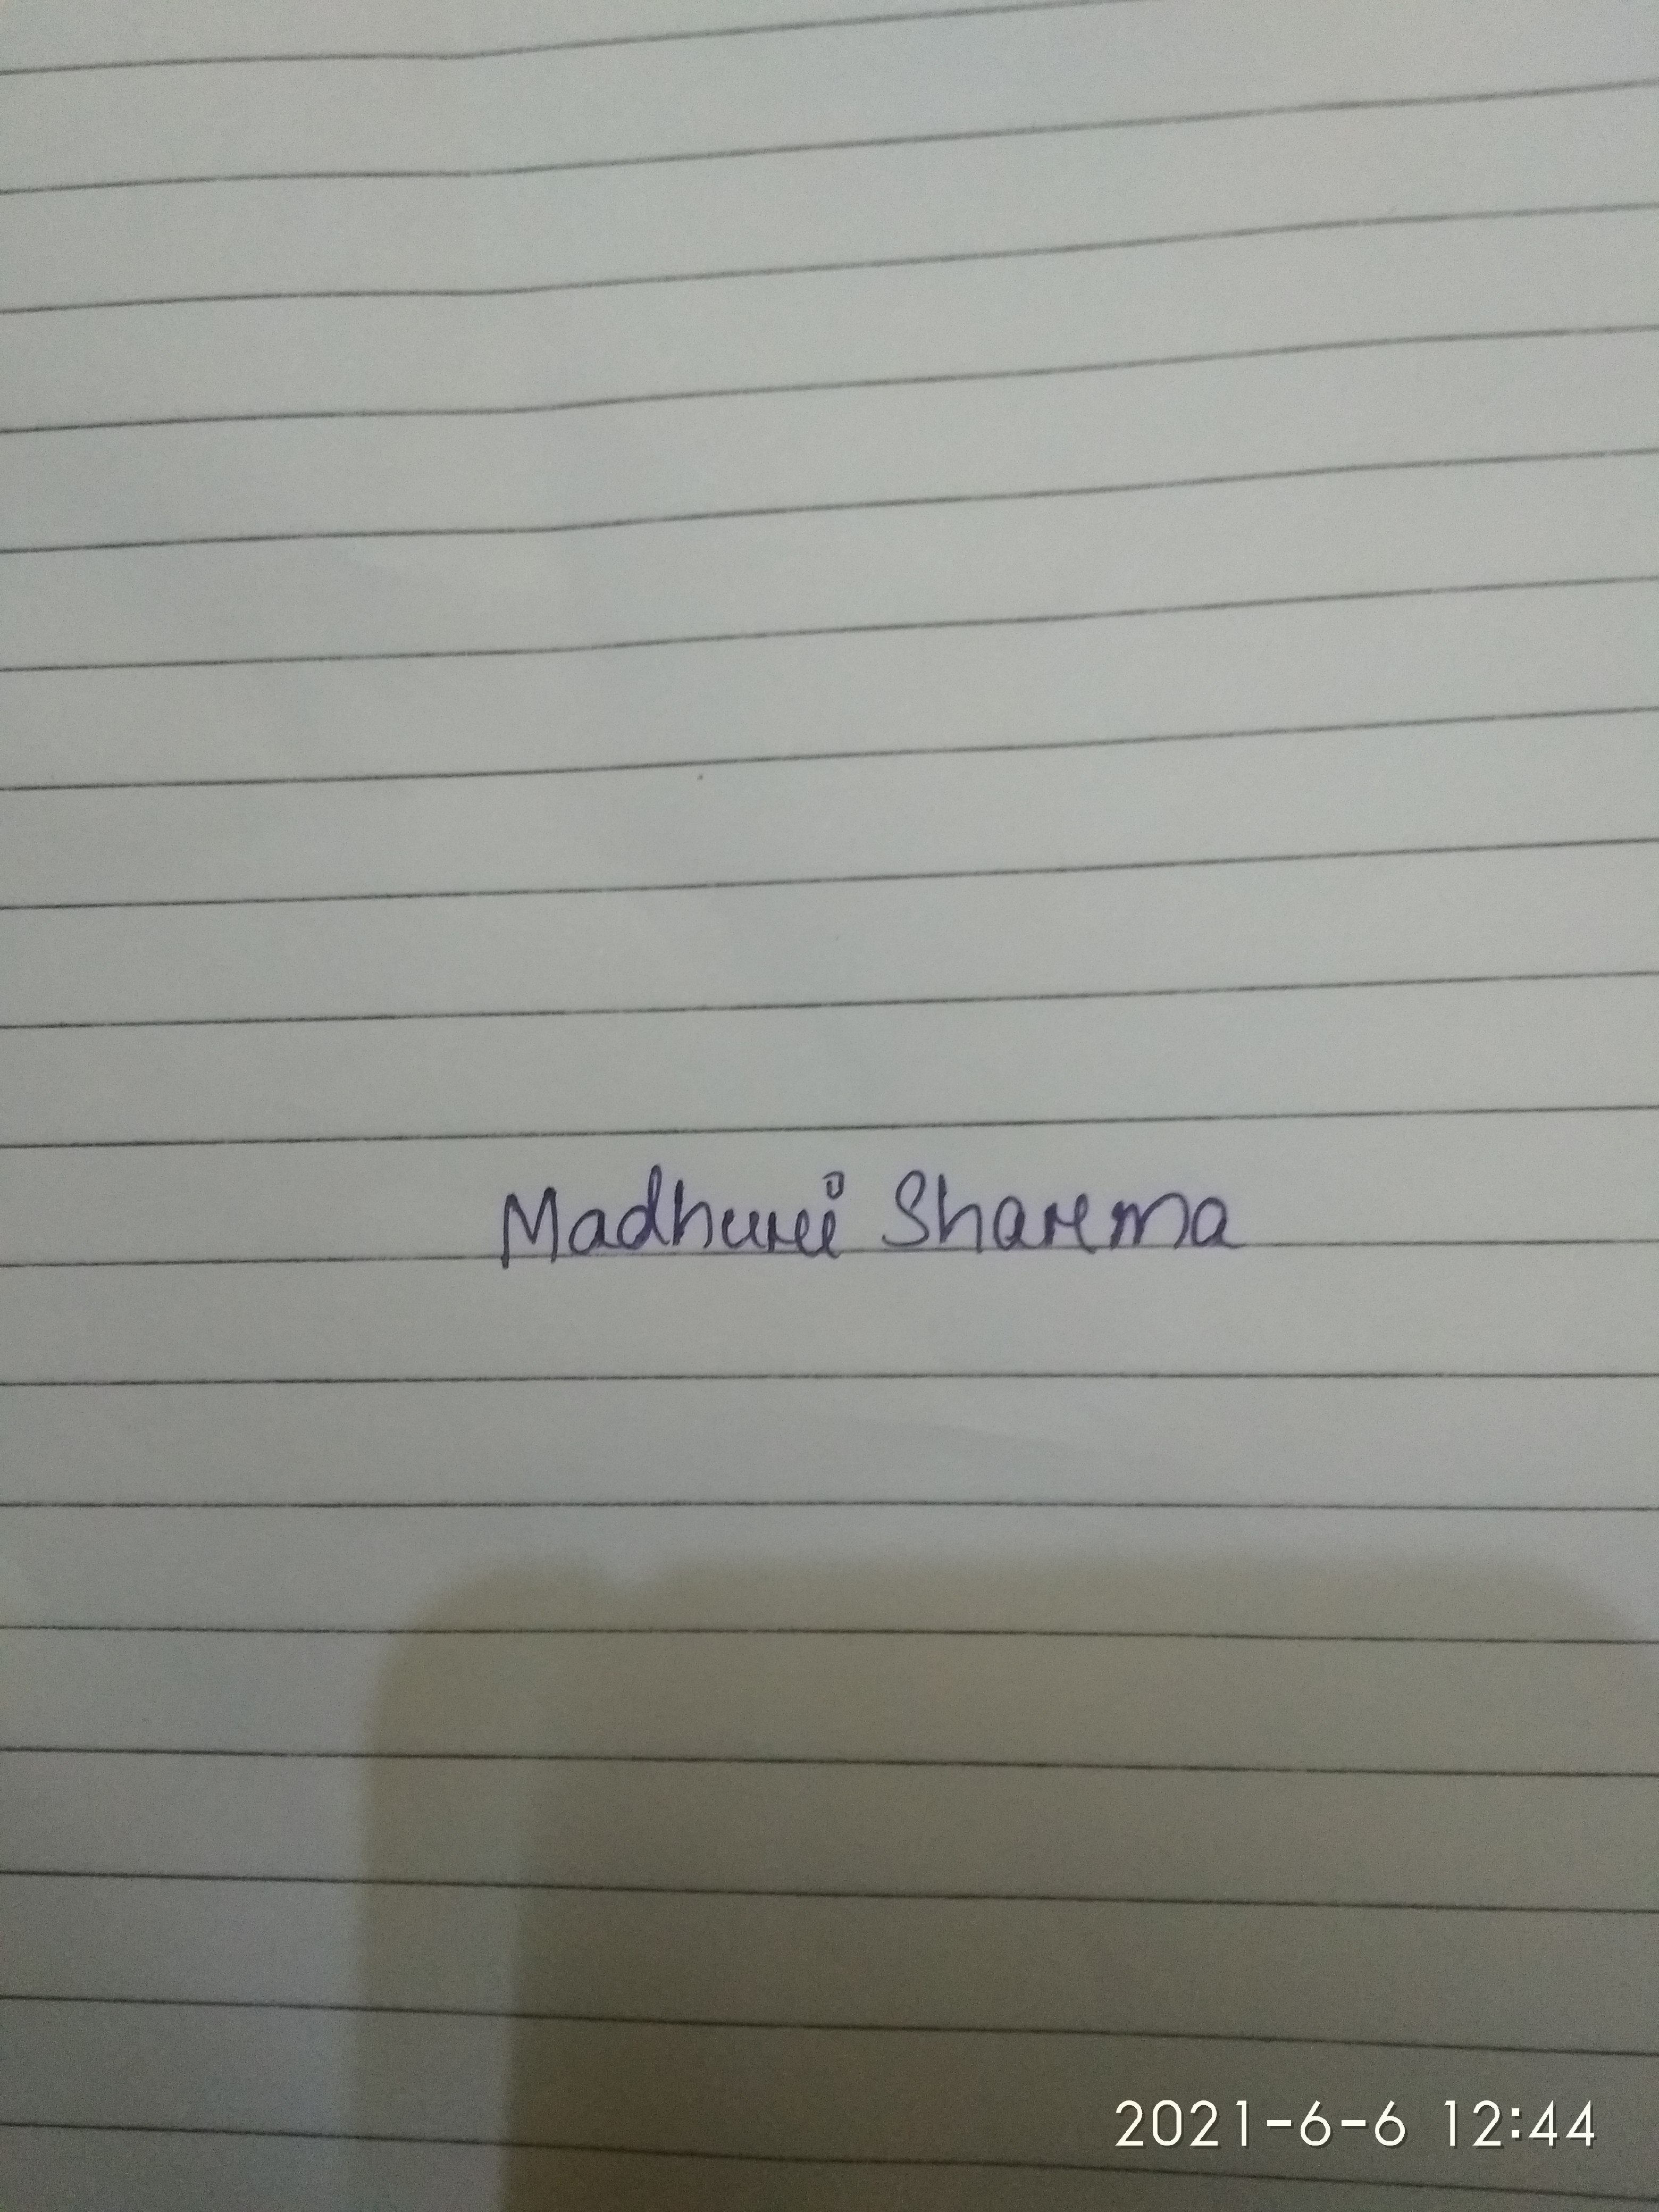 Madhuri Sharma
2021-6-6 12:44